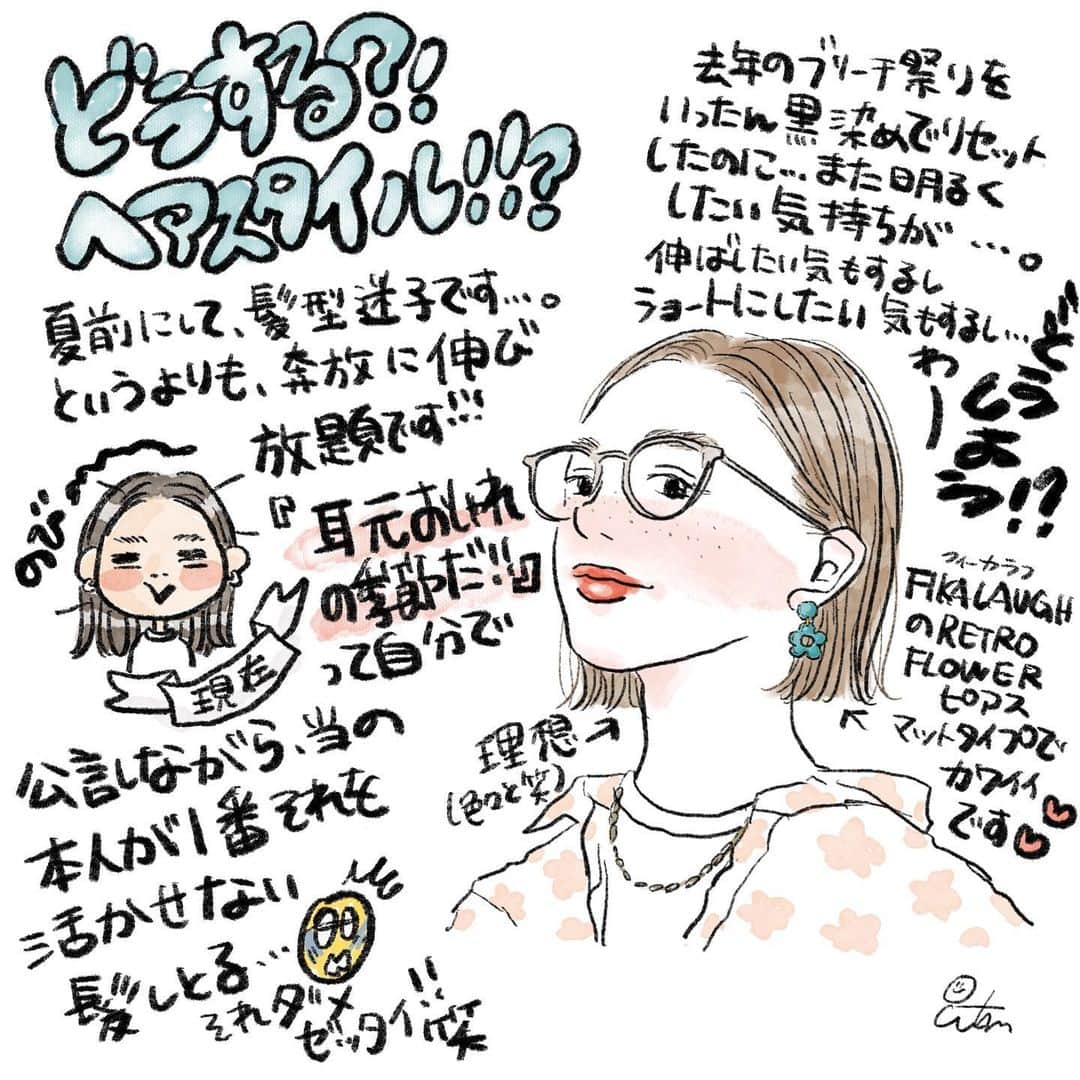 どうする?!
ヘアスタイル!!?
夏前にして、髪型迷子です…。
というよりも、奔放に伸び
放題です!!!
のび〜
現在
『耳元おしゃれ
の季節だ!!』
って自分で
公言しながら、当の
本人が1番それを
活かせない
髪しとる…
それダメ
ゼッタイ!!笑
去年のブリーチ祭りを
いったん黒染めでリセット
したのに…また明るく
したい気持ちが…。
伸ばしたい気もするし
ショートにしたい気もするし…
わー
どうしよう!?
理想→
(色々と笑)
フィーカラフ
FIKALAUGH
のRETRO
FLOWER
ピアス
マットタイプで
カワイイ
です